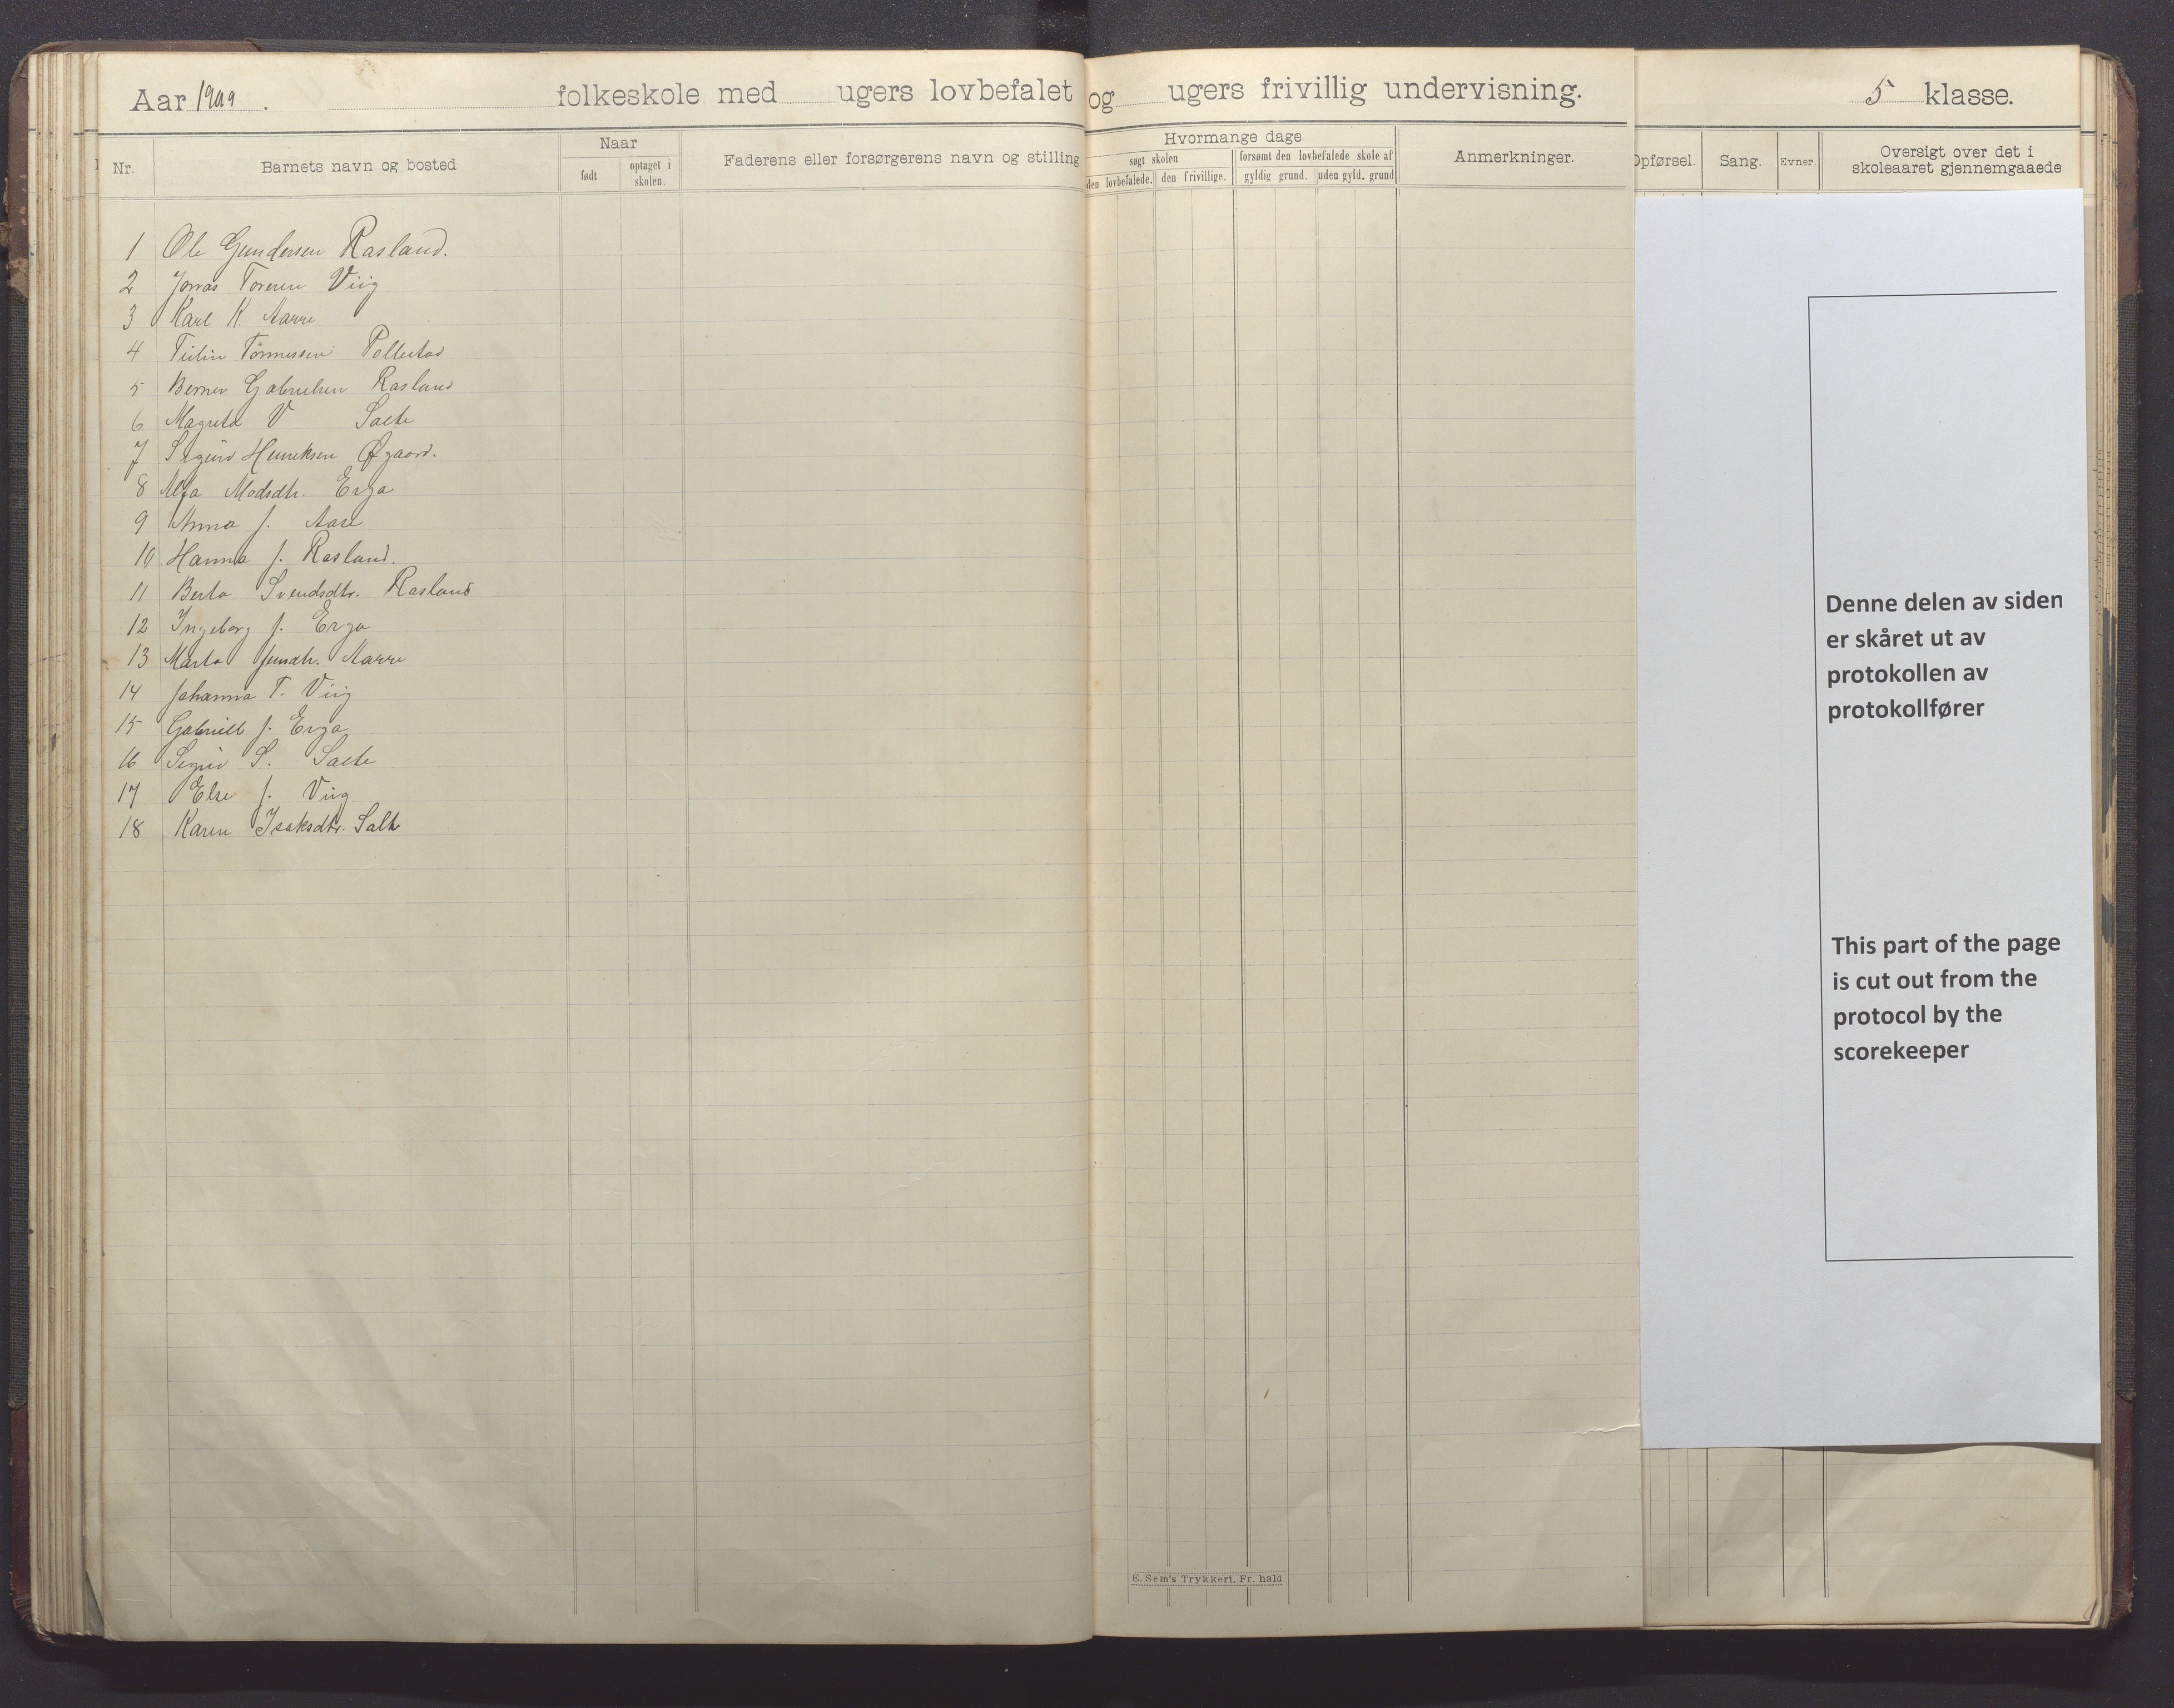 Aar 1909. folkeskole med ugers lovbefalet og ugers frivillig undervisning. 5 klasse.
Nr. Barnets navn og bosted Naar Faderens eller forsørgerens navn og stilling Hvormange dage Anmerkninger. Opførsel. Sang. Evner. Oversigt over det i skoleaaret gjennemgaaede
født optaget i skolen. søgt skolen forsømt den lovbefalede skole af
den lovbefalede. den frivillige. gyldig grund. uden gyld. grund
1 Ole Gundersen Rasland.
2 Jonas Toresen Viig
3 Karl K. Aarre
4 Tønnessen Pollestad
5 Berner Gabrielsen Rasland
6 Magreta V Salte
7 Sigurd Henriksen Øgaard.
8 Alfa Madsdtr. Erga
9 Anna J. Aase
10 Hanna J. Rasland.
11 Berta Svendsdtr. Rasland
12 Ingeborg J. Erga
13 Marta Jensdtr. Aarre
14 Johanna T. Viig
15 Gabriell J. Erga
16 Sigrid S. Salte
17 Else J. Viig
18 Karen Isaksdtr. Salte
E. Sem's Trykkeri, Fr. hald
Denne delen av siden
er skåret ut av
protokollen av
protokollfører
This part of the page
is cut out from the
protocol by the
scorekeeper